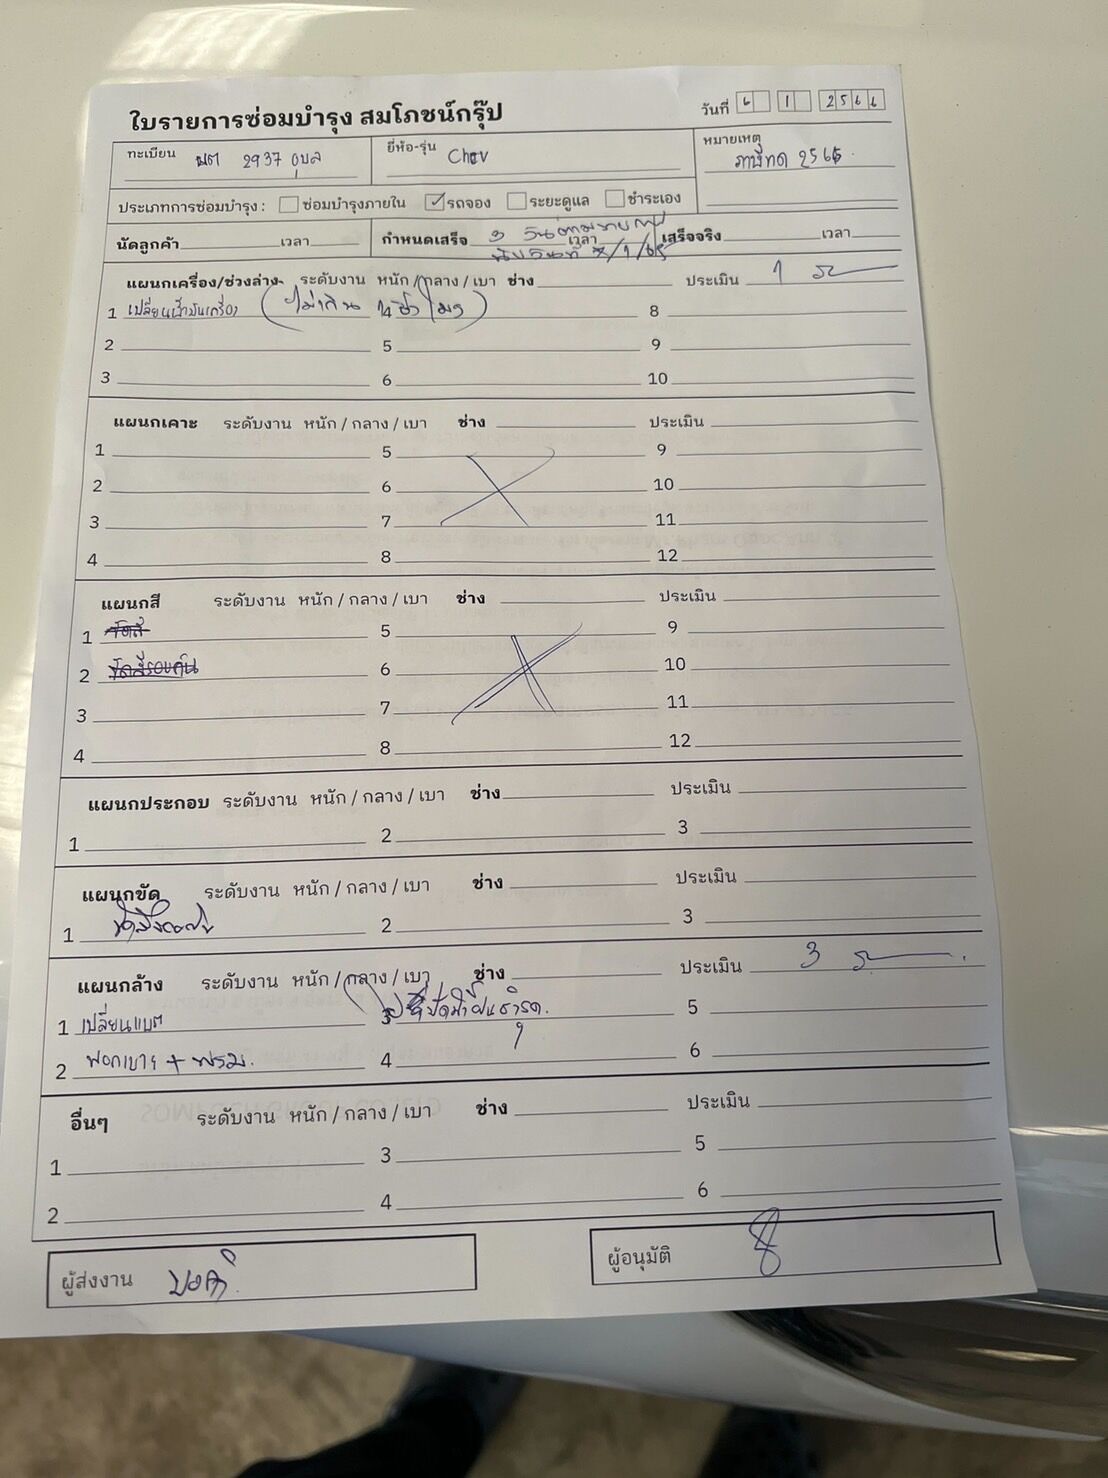 ใบรายการซ่อมบำรุง สมโภชน์กรุ๊ป
วันที่ 6 1 2566
ทะเบียน 2937 อุบล
ยี่ห้อ-รุ่น Chev
หมายเหตุ
ประเภทการซ่อมบำรุง : ซ่อมบำรุงภายใน ✓ รถจอง ระยะดูแล ชำระเอง
นัดลูกค้า เวลา กำหนดเสร็จ 3 เวลา เสร็จจริง เวลา
แผนกเครื่อง/ช่วงล่าง ระดับงาน หนัก / กลาง / เบา ช่าง ประเมิน 1
1 เปลี่ยนน้ำมันเครื่อง (ไม่เกิน 4 8
2 5 9
3 6 10
แผนกเคาะ ระดับงาน หนัก / กลาง / เบา ช่าง ประเมิน
1 5 9
2 6 10
3 7 11
4 8 12
แผนกสี ระดับงาน หนัก / กลาง / เบา ช่าง ประเมิน
1 5 9
2 ขัดสีรอบคัน 6 10
3 7 11
4 8 12
แผนกประกอบ ระดับงาน หนัก / กลาง / เบา ช่าง ประเมิน
1 2 3
แผนกขัด ระดับงาน หนัก / กลาง / เบา ช่าง ประเมิน
1 2 3
แผนกล้าง ระดับงาน หนัก / กลาง / เบา ช่าง ประเมิน 3
1 เปลี่ยนแบต 3 5
2 ฟอกเบาะ + พรม. 4 6
อื่นๆ ระดับงาน หนัก / กลาง / เบา ช่าง ประเมิน
1 3 5
2 4 6
ผู้ส่งงาน
ผู้อนุมัติ